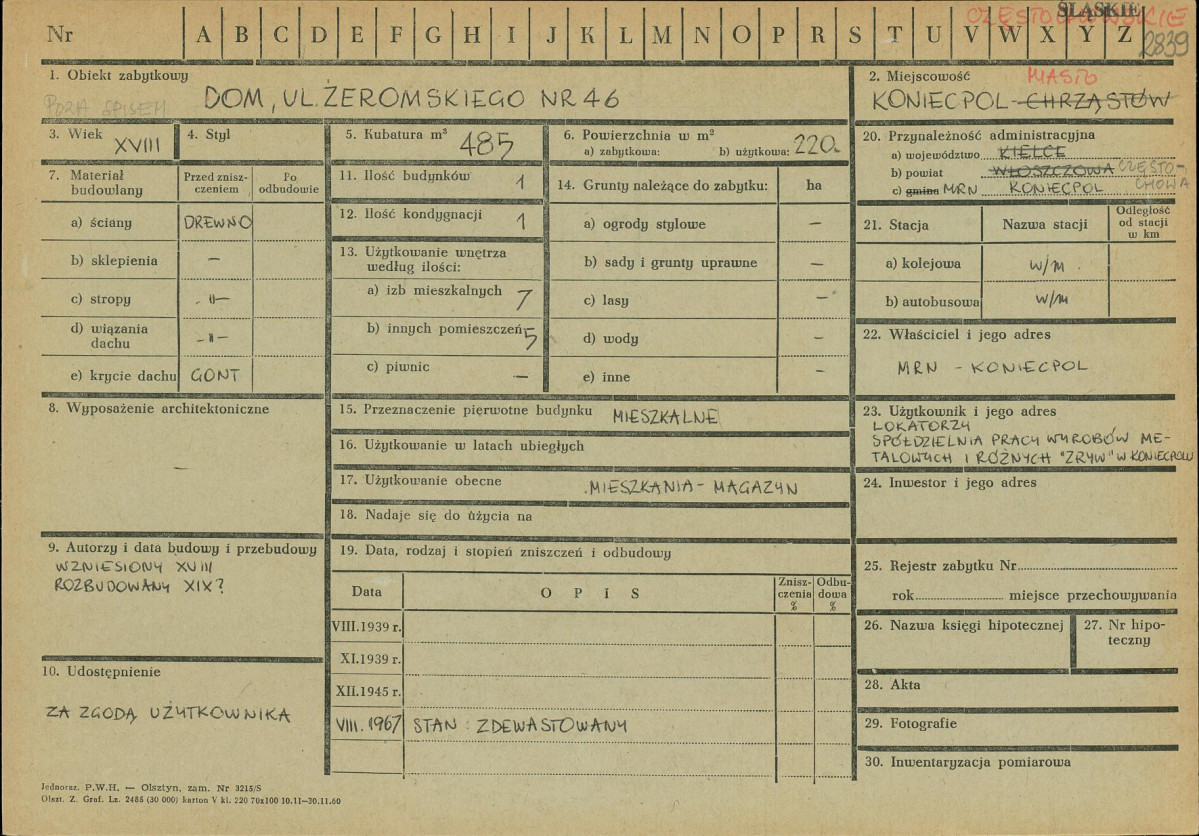 ŚLĄSKIE
CZĘSTOCHOWSKIE
Nr A B C D E F G H I J K L M N O P R S T U V W X Y Z 2839
1. Obiekt zabytkowy
POZA SPISEM
DOM, UL. ŻEROMSKIEGO NR 46
2. Miejscowość MIASTO
KONIECPOL-CHRZĄSTÓW
3. Wiek
XVIII
4. Styl
5. Kubatura m³
485
6. Powierzchnia w m²
a) zabytkowa: b) użytkowa: 220
20. Przynależność administracyjna
a) województwo KIELCE
b) powiat WŁOSZCZOWA CZĘSTO-
CHOWA
c) gmina MRN KONIECPOL
7. Materiał
budowlany
Przed znisz-
czeniem
Po
odbudowie
a) ściany DREWNO
b) sklepienia —
c) stropy -"-
d) wiązania
dachu -"-
e) krycie dachu GONT
11. Ilość budynków 1
12. Ilość kondygnacji 1
13. Użytkowanie wnętrza
według ilości:
a) izb mieszkalnych 7
b) innych pomieszczeń 5
c) piwnic —
14. Grunty należące do zabytku: ha
a) ogrody stylowe —
b) sady i grunty uprawne —
c) lasy —
d) wody —
e) inne —
21. Stacja Nazwa stacji
Odległość
od stacji
w km
a) kolejowa w/m
b) autobusowa w/m
22. Właściciel i jego adres
MRN - KONIECPOL
8. Wyposażenie architektoniczne
—
15. Przeznaczenie pierwotne budynku MIESZKALNE
16. Użytkowanie w latach ubiegłych
17. Użytkowanie obecne MIESZKANIA - MAGAZYN
18. Nadaje się do użycia na
23. Użytkownik i jego adres
LOKATORZY
SPÓŁDZIELNIA PRACY WYROBÓW ME-
TALOWYCH I RÓŻNYCH "ZRYW" W KONIECPOLU
24. Inwestor i jego adres
9. Autorzy i data budowy i przebudowy
WZNIESIONY XVIII
ROZBUDOWANY XIX?
19. Data, rodzaj i stopień zniszczeń i odbudowy
Data OPIS
Znisz-
czenia
%
Odbu-
dowa
%
VIII.1939 r.
XI.1939 r.
XII.1945 r.
VIII.1967 STAN: ZDEWASTOWANY
25. Rejestr zabytku Nr
rok miejsce przechowywania
26. Nazwa księgi hipotecznej
27. Nr hipo-
teczny
10. Udostępnienie
ZA ZGODĄ UŻYTKOWNIKA
28. Akta
29. Fotografie
30. Inwentaryzacja pomiarowa
Jednoraz. P.W.H. — Olsztyn, zam. Nr 3215/S
Olszt. Z. Graf. Lz. 2485 (30 000) karton V kl. 220 70x100 10.11—30.11.60